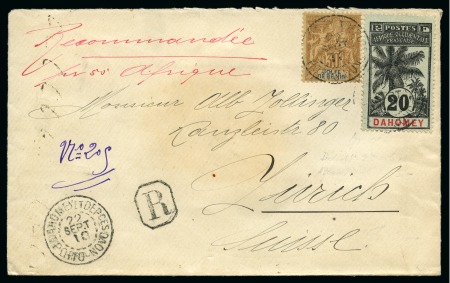 Recommandée
Afrique
POSTES
AFRIQUE OCCIDENTALE
FRANÇAISE
20
DAHOMEY
Monsieur Alb. Zollinger
Kanzleistr 80
No 205
R
Zurich
Suisse
22
SEPT
10
PORTO-NOVO